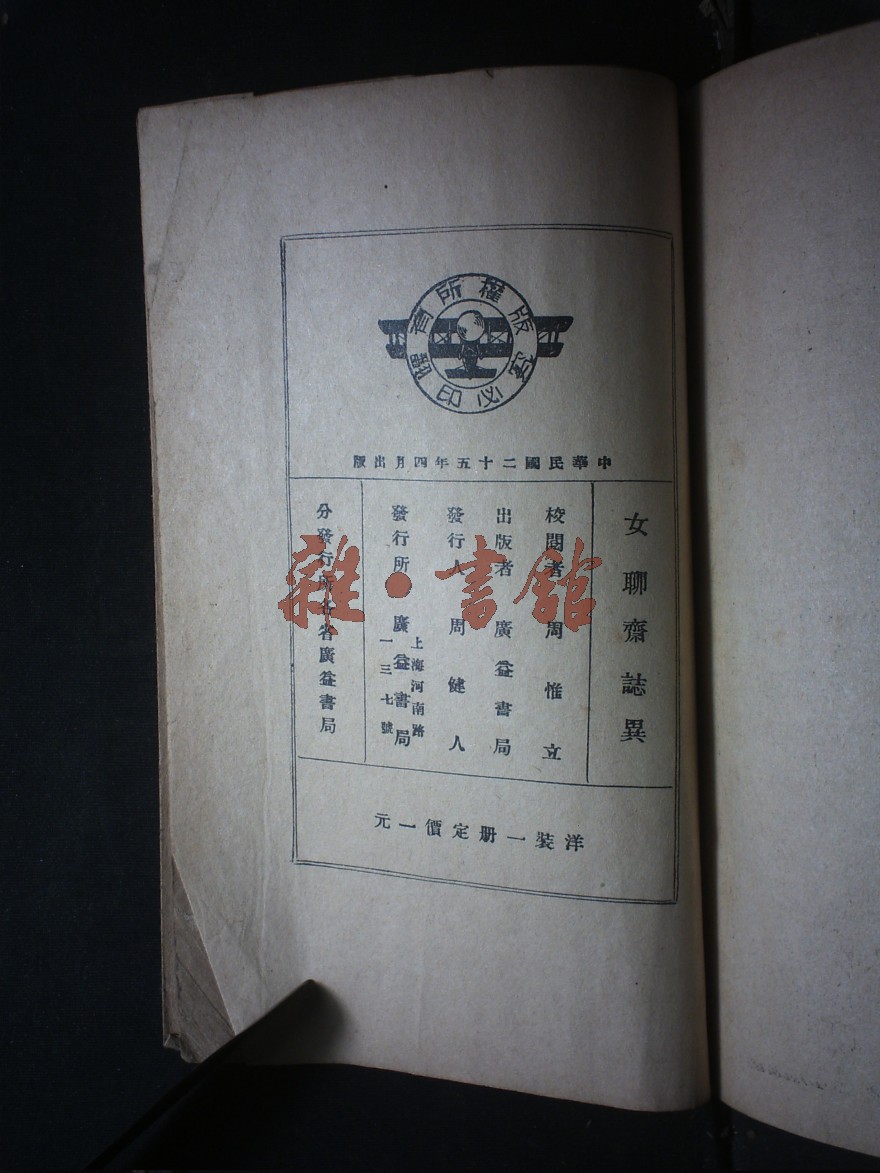 版權所有
翻印必究
中華民國二十五年四月出版
女聊齋誌異
校閱者 周惟立
出版者 廣益書局
發行人 周健人
發行所 廣益書局
上海河南路
一三七號
分發行所各省廣益書局
洋裝一册定價一元
雜·書館